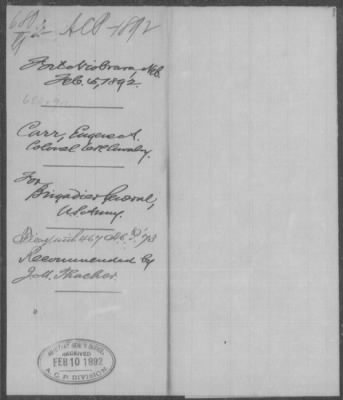 680
A.C.P. 1892
Fort Niobrara, Neb.
Feb. 5, 1892.
Carr, Eugene A.
Colonel 6th Cavalry.
For
Brigadier General,
U.S. Army.
Recommended by
J.M. Thacher.
RECEIVED
FEB 10 1892
A.C.P. DIVISION